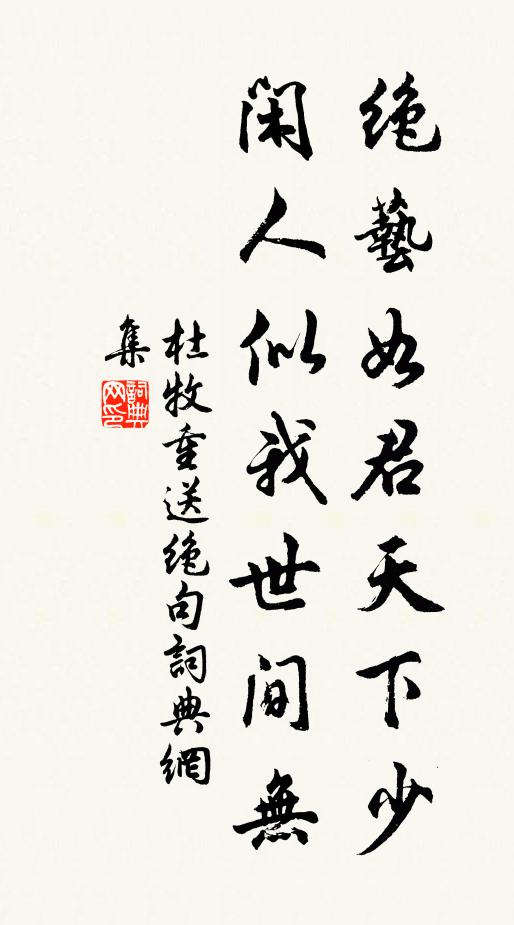 绝藝如君天下少
閑人似我世间無
杜牧重送绝句詞典網
集
詞典
网印